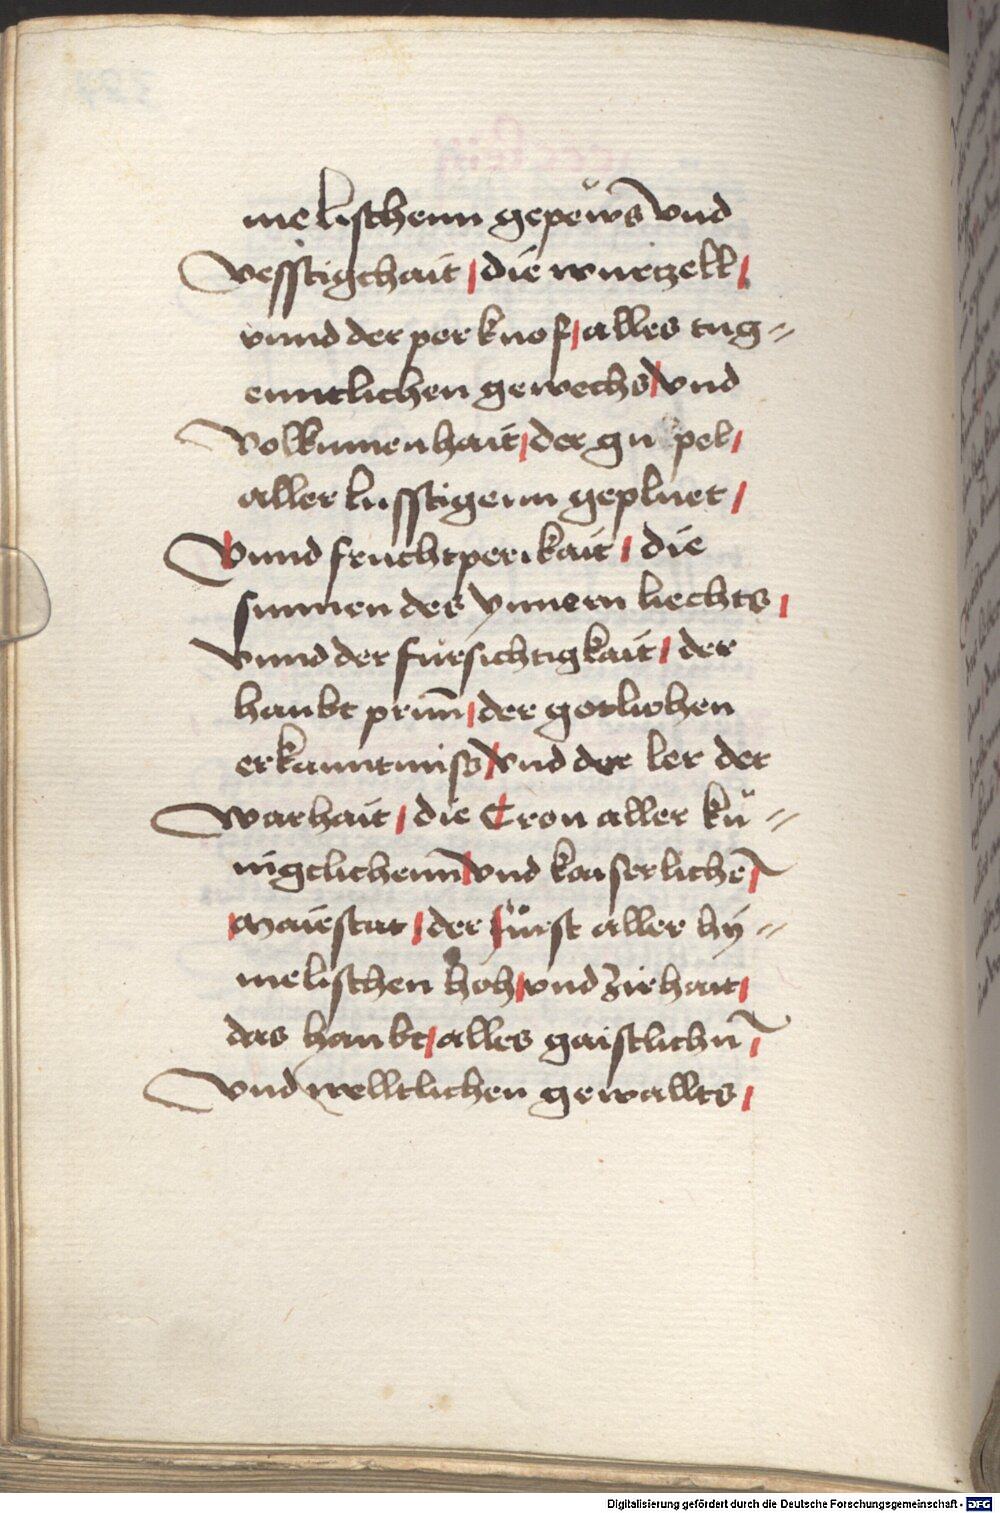 melischenn gepeẘs vnd
Vesstigchait / die wurtzell /
vnnd der perknof / alles tug=
enntlichen gewechs / vnd
Volkumenhait / der gupel /
aller lusstigenn gepluet /
Vnnd fruchtperikait / die
sunnen des ynnern liechts /
vnnd der fürsichtigkait / der
haubt prun̄ / der gotlichen
erkanntniss / vnd der ler der
Warhait / die Cron aller kü=
nigclichenn / vnd kaiserlichē /
Maiestat / der fürst aller hy=
melischen hoh / vnd zirhait /
das haubt / alles gaistlichn̄ /
Vnd welltlichen gewallts /
Digitalisierung gefördert durch die Deutsche Forschungsgemeinschaft - DFG